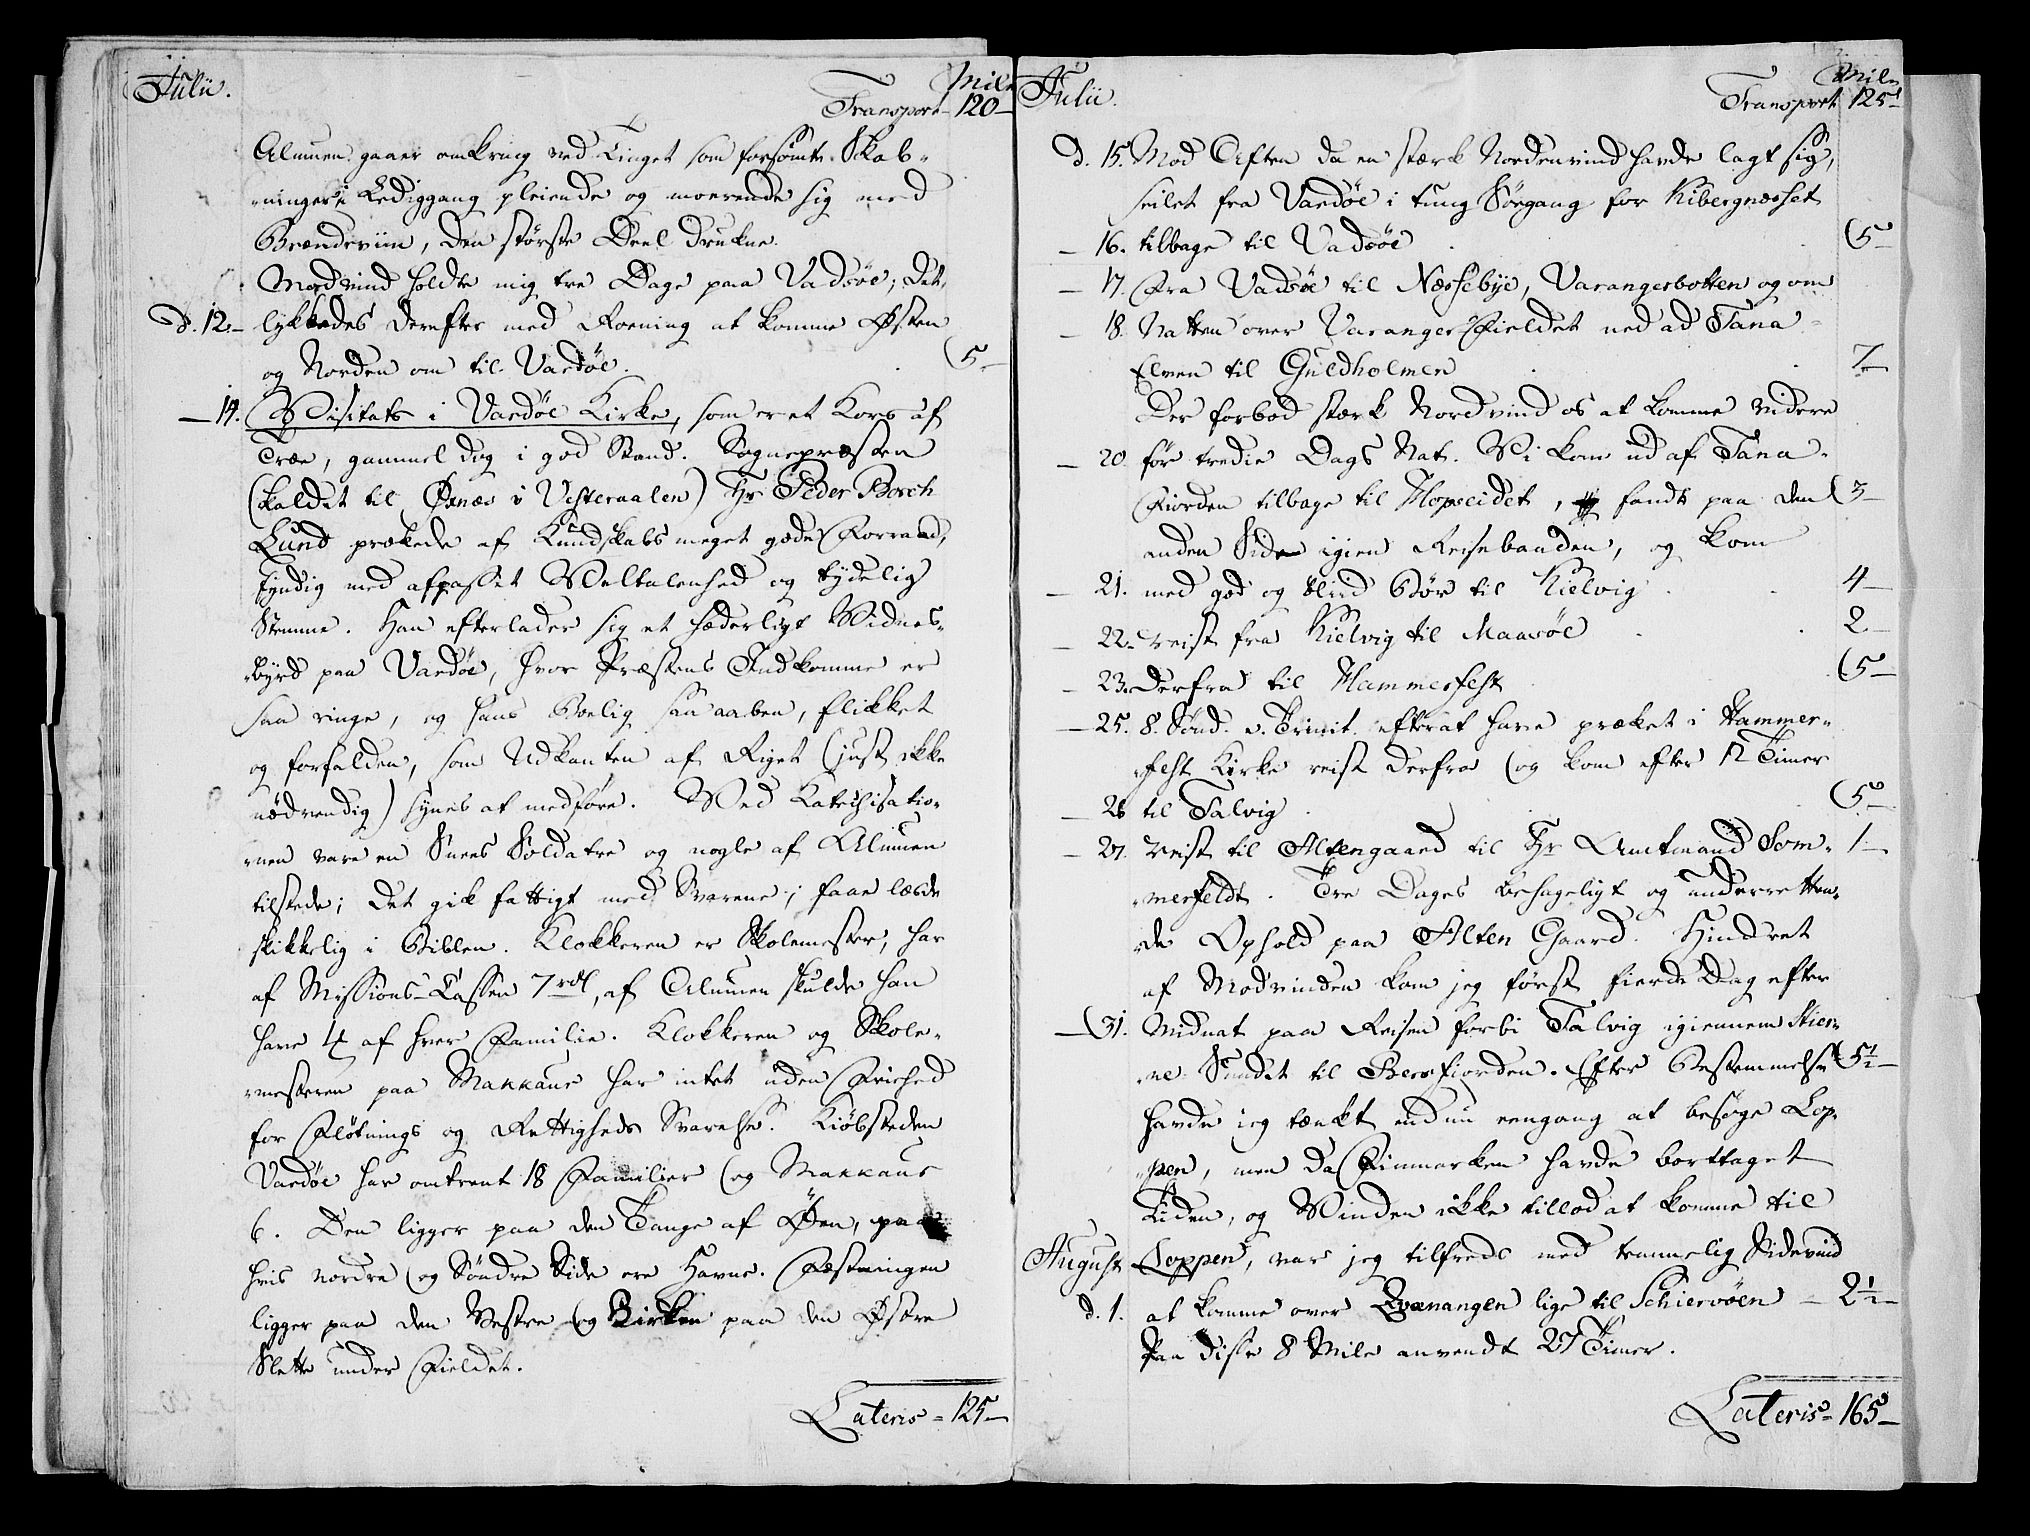 Julii.
Mile
Transport - 120 -
Almuen gaaer omkring ved Tinget som forsømte Skab-
-ninger i Lediggang pleiende og moerende sig med
Brændeviin, den største Deel drukne.
Modvind holdte mig tre Dage paa Vadsöe; Det
d. 12. - lykkedes derefter med Roening at komme Østen
og Norden om til Vardöe. 5 -
- 14. Visitats i Vardöe Kirke, som er et Kors af
Træe, gammel dog i god Stand. Sognepræsten
(kaldet til Öxnæs i Vesteraalen) Hr Peder Borch
Lund prækede af Kundskabs meget gode Forraad,
fyndig med afpasset Veltalenhed og tydelig
Stemme. Han efterlader sig et hæderligt Vidnes-
-byrd paa Vardöe, hvor Præstens Indkomme er
saa ringe, og hans Boelig saa aaben, flikket
og forfalden, som Udkanten af Riget (just ikke
nödvendig) synes at medføre. Ved Katechisatio-
-nen vare en Snees Soldater og nogle af Almuen
tilstede; Det gik fattigt med Svarene; faae læste
skikkelig i Biblen. Klokkeren er Skolemester, har
af Missions-Cassen 7 rdl, af Almuen skulde han
have 4 af hver Familie. Klokkeren og Skole-
-mesteren paa Makkaur har intet uden Friehed
for Fløtnings og Rettigheds Svarelse. Kiöbsteden
Vardöe har omtrent 18 Familier og Makkaur
6. Den ligger paa den Tange af Øen, paa
hvis nordre og Söndre Side ere Havne. Fæstningen
ligger paa den Vestre og Kirken paa den Østre
Slette under Fieldet.
Lateris = 125 -
Julii.
Mile
Transport 125 -
d. 15. Mod Aften da en stærk Nordenvind havde lagt sig,
seilet fra Vardöe i tung Söegang for Kibergnæsset
- 16. tilbage til Vadsöe 5 -
- 17. Fra Vadsöe til Næssebye, Varangerbotten og om
- 18. Natten over Varanger Fieldet ned ad Tana-
Elven til Guldholmen 7 -
Der forbød stærk Nordvind os at komme videre
- 20. før tredie Dags Nat. Vi kom ud af Tana-
Fiorden tilbage til Hopseidet, fandt paa den 3 -
anden Side igien Reisebaaden, og kom
- 21. med god og blid Bör til Kielvig 4 -
- 22. reist fra Kielvig til Maasöe 2 -
- 23. derfra til Hammerfest 5 -
- 25. 8. Sönd. e. Trinit. efterat have præket i Hammer-
-fest Kirke reist derfra og kom efter 12 Timer
- 26 til Talvig 5 -
- 27. reist til Altengaard til Hr Amtmand Som- 1 -
-merfeldt. Tre Dages behageligt og underretten-
-de Ophold paa Alten Gaard. Hindret
af Modvinden kom jeg først fierde Dag efter
- 31. Midnat paa Reisen forbi Talvig igiennem Stier-
-ne Sundet til Bersfiorden. Efter Bestemmelsen 5½ -
havde jeg tænkt endnu eengang at besøge Lop-
-pen, men da Finmarken havde borttaget
Tiden, og Vinden ikke tillod at komme til
August Loppen, var jeg tilfreds med temmelig Sidevind
d. 1. at komme over Qvænangen lige til Schiervöen - 2½ -
Paa disse 8 Mile anvendt 27 Timer.
Lateris = 165 -